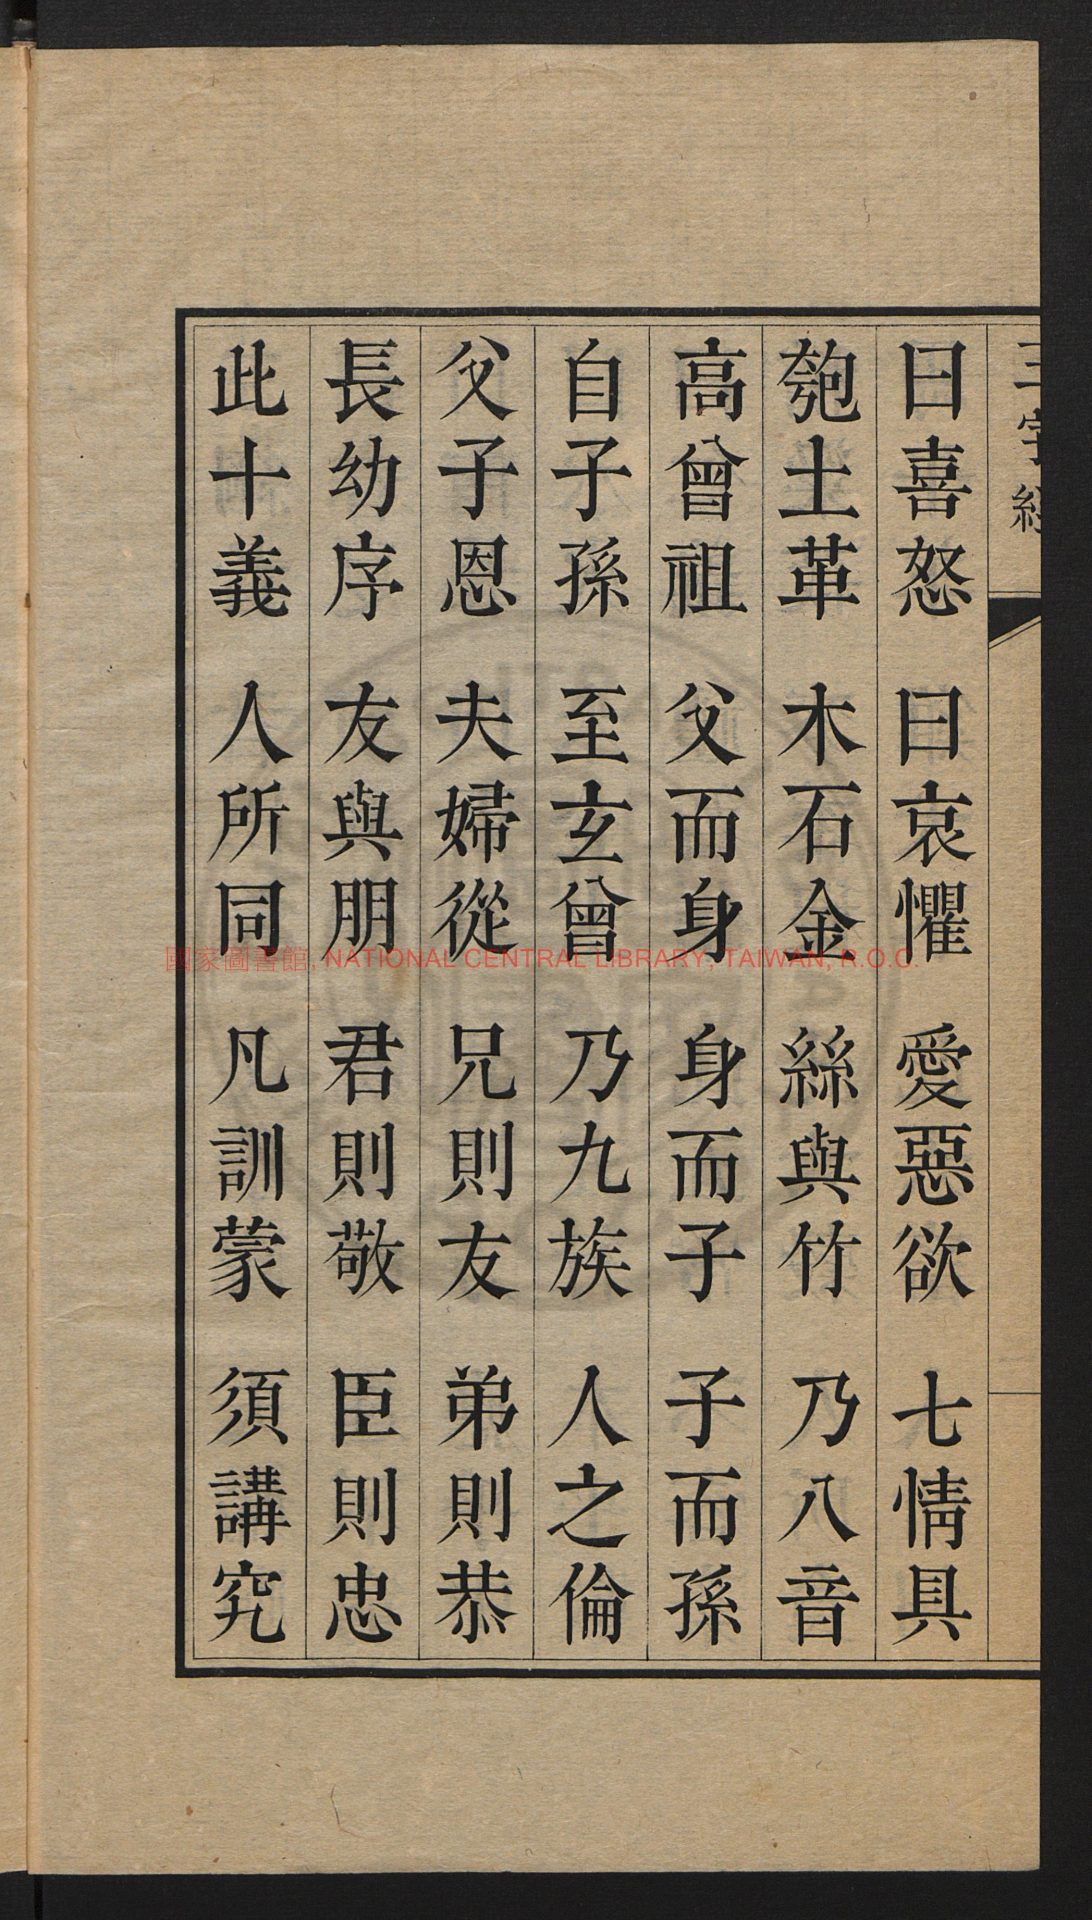 三字經
曰喜怒 曰哀懼 愛惡欲 七情具
匏土革 木石金 絲與竹 乃八音
高曾祖 父而身 身而子 子而孫
自子孫 至玄曾 乃九族 人之倫
父子恩 夫婦從 兄則友 弟則恭
長幼序 友與朋 君則敬 臣則忠
此十義 人所同 凡訓蒙 須講究
國家圖書館, NATIONAL CENTRAL LIBRARY, TAIWAN, R.O.C.